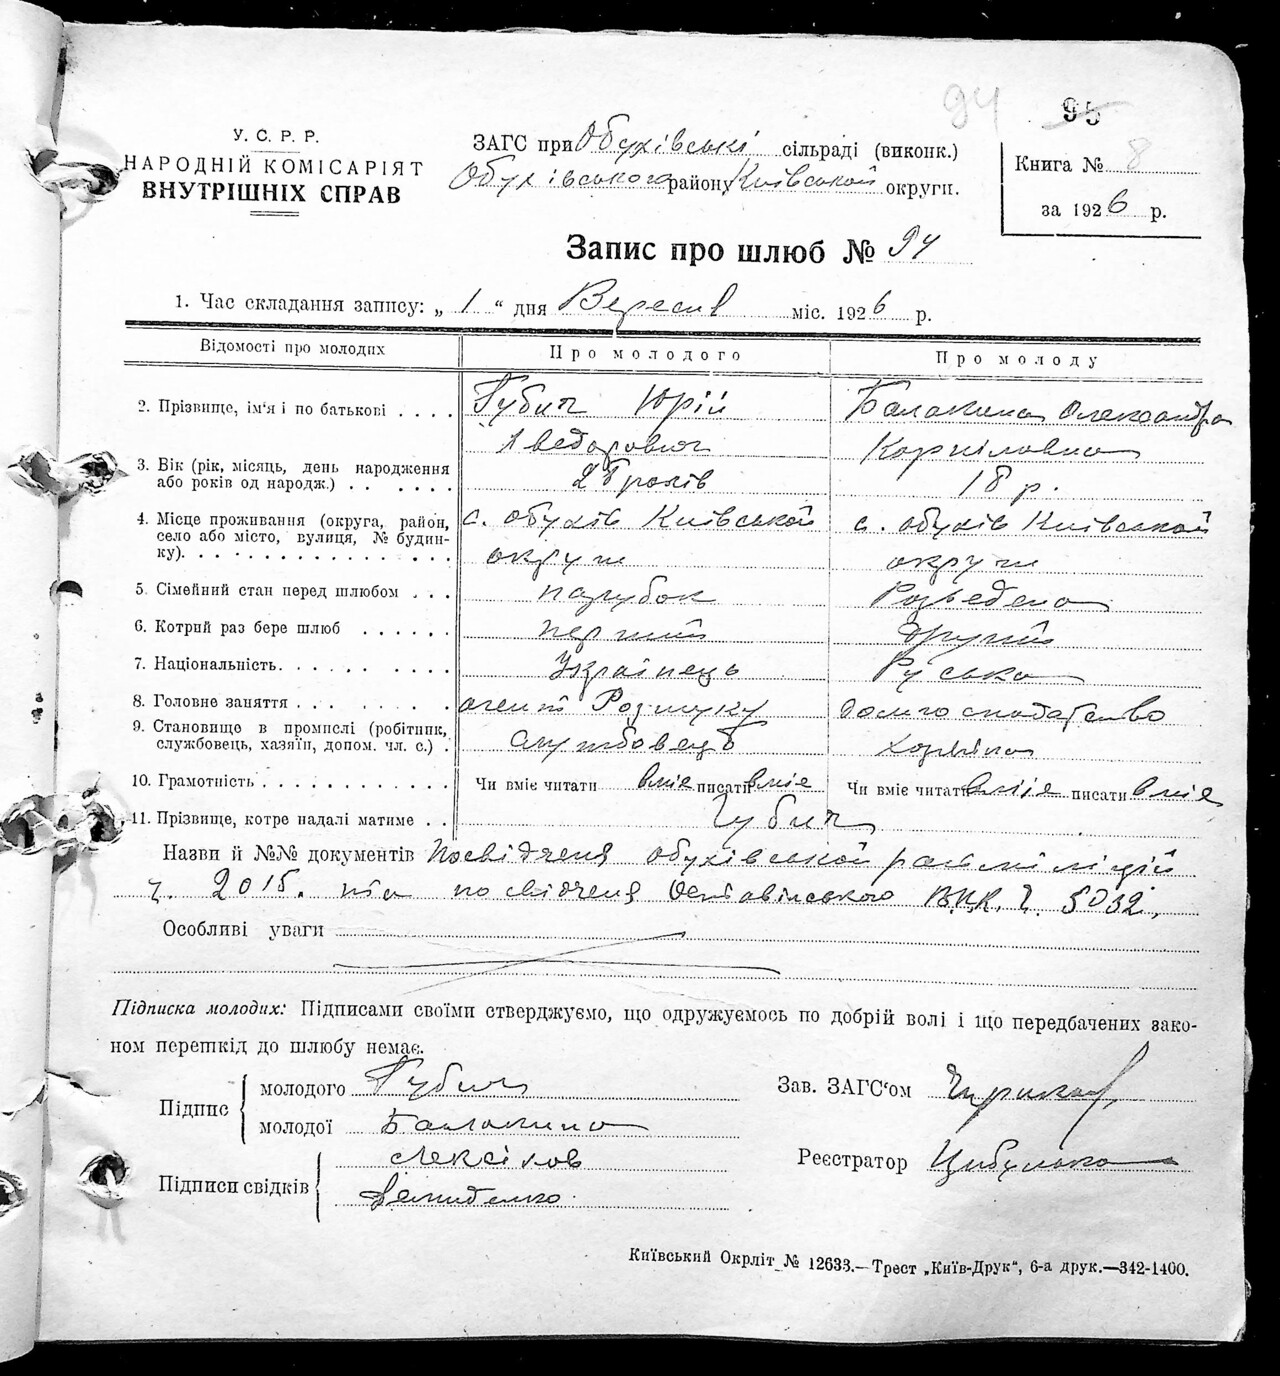 94 95
У. С. Р. Р.
НАРОДНІЙ КОМІСАРІЯТ
ВНУТРІШНІХ СПРАВ
ЗАГС при Обухівські сільраді (виконк.)
Обухівського району Київської округи.
Книга № 8
за 1926 р.
Запис про шлюб № 94
1. Час складання запису: „ 1 “ дня Вересня міс. 1926 р.
Відомості про молодих Про молодого Про молоду
2. Прізвище, ім'я і по батькові . . . . Губич Юрій Балакина Олександра
Корніловна
3. Вік (рік, місяць, день народження
або років од народж.) . . . . . . . років 18 р.
4. Місце проживання (округа, район, с. Обухів Київської с. Обухів Київської
село або місто, вулиця, № будин-
ку). . . . . . . . . . . . . . . . округи округи
5. Сімейний стан перед шлюбом . . . парубок Розведена
6. Котрий раз бере шлюб . . . . . . перший другий
7. Національність. . . . . . . . . Українець Руська
8. Головне заняття . . . . . . . . агент Розшуку домогосподарство
9. Становище в промислі (робітник,
службовець, хазяїн, допом. чл. с.) . службовець хазяїна
10. Грамотність . . . . . . . . . . . Чи вміє читати вміє писати вміє Чи вміє читати вміє писати вміє
11. Прізвище, котре надалі матиме . . Губич
Назви й №№ документів Посвідченя Обухівської райміліції
ч. 2015. та посвідченя В.И.К. ч. 5032.
Особливі уваги
Підписка молодих: Підписами своїми стверджуємо, що одружуємось по добрій волі і що передбачених зако-
ном перешкід до шлюбу немає.
Підпис молодого Губич
молодої Балакина
Підписи свідків Алексіков
Демиденко
Зав. ЗАГС‘ом
Реєстратор Цибулька
Київський Окрліт № 12633.—Трест „Київ-Друк“, 6-а друк.—342-1400.